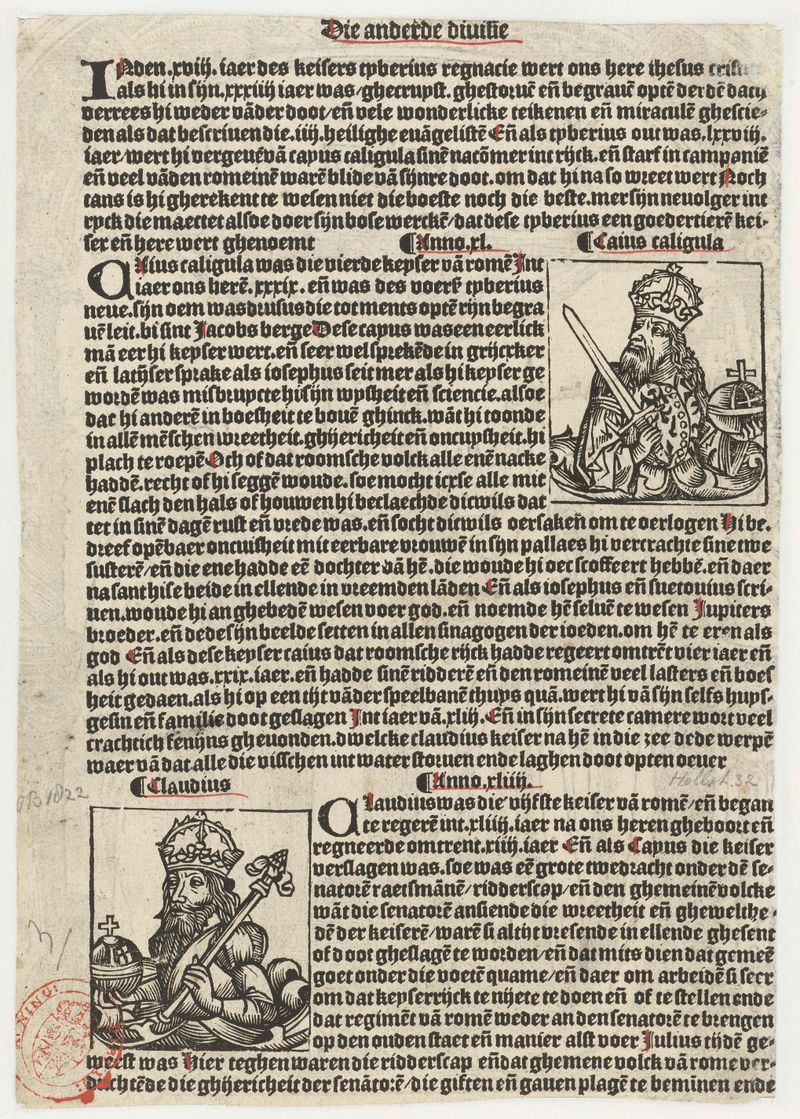 Die anderde diuisie
INden.xviij.iaer des keisers tyberius regnacie wert ons here ihesus
als hi in sijn.xxxiiij iaer was/ghecruyst.ghestoruē eñ begrauē optē derdē
verrees hi weder vāder doot/eñ vele wonderlicke teikenen eñ miraculē ghescie-
den als dat bescriuen die.iiij.heilighe euāgelistē Eñ als tyberius out was.lxxviij.
iaer/wert hi vergeuē vā cayus caligula sinē nacōmer int rijck.eñ starf in campaniē
eñ veel vāden romeinē warē blide vā sijnre doot.om dat hi na so wreet wert Noch
tans is hi gherekent te wesen niet die boeste noch die beste.mer sijn neuolger int
ryck die maectet alsoe doer sijn bose werckē/dat dese tyberius een goedertierē kei-
ser eñ here wert ghenoemt ¶Anno.xl. ¶Caius caligula
CAius caligula was die vierde keyser vā romē Int
iaer ons herē.xxxix.eñ was des voers̄ tyberius
neue.sijn oem was drusus die tot ments optē rijn begra
uē leit.bi sint Jacobs berge Dese cayus was een eerlick
mā eer hi keyser wert.eñ seer wel sprekēde in grijcxker
eñ latijser sprake als iosephus seit mer als hi keyser ge
wordē was misbruycte hi sijn wysheit eñ sciencie.alsoe
dat hi anderē in boesheit te bouē ghinck.wāt hi toonde
in allē mēschen wreetheit.ghijericheit eñ oncuysheit.hi
plach te roepē Och of dat roomsche volck alle enē nacke
haddē.recht of hi seggē woude.soe mocht icxse alle mit
enē slach den hals of houwen hi beclaechde dicwils dat
tet in sinē dagē rust eñ vrede was.eñ socht dicwils oersakeñ om te oerlogen Hi be.
dreef opēbaer oncuisheit mit eerbare vrouwē in sijn pallaes hi vercrachte sine twe
susterē/eñ die ene hadde eē dochter vā hē.die woude hi oec scoffeert hebbē.eñ daer
na santhise beide in ellende in vreemden lāden Eñ als iosephus eñ suetonius scri-
uen.woude hi anghebedē wesen voer god.eñ noemde hē seluē te wesen Jupiters
broeder.eñ dede sijn beelde setten in allen sinagogen der ioeden.om hē te eren als
god Eñ als dese keyser caius dat roomsche rijck hadde regeert omtrēt vier iaer eñ
als hi out was.xxix.iaer.eñ hadde sinē ridderē eñ den romeinē veel lasters eñ boes
heit gedaen.als hi op een tijt vāder speelbanē thuys quā.wert hi vā sijn selfs huys-
gesin eñ familie doot geslagen Int iaer vā.xliij.Eñ in sijn secrete camere wort veel
crachtich fenijns gheuonden.dwelcke claudius keiser na hē in die zee dede werpē
waer vā dat alle die visschen int water storuen ende laghen doot opten oeuer
¶Claudius ¶Anno.xliiij.
CLaudius was die vijfste keiser vā romē/eñ began
te regerē int.xliij.iaer na ons heren gheboort eñ
regneerde omtrent.xiiij.iaer Eñ als Cayus die keiser
verslagen was.soe was eē grote twedracht onder dē se-
natorē raetsmānē/ridderscop/eñ den ghemeinē volcke
wāt die senatorē ansiende die wreetheit eñ ghewelthe-
dē der keiserē/warē si altijt vresende in ellende ghesent
of doot gheslagē te worden/eñ dat mits dien dat gemeē
goet onder die voetē quame/eñ daer om arbeidē si seer
om dat keyserrijck te nijete te doen eñ of te stellen ende
dat regimēt vā romē weder an den senatorē te brengen
op den ouden staet eñ manier alst voer Julius tijdē ge-
weest was Hier teghen waren die ridderscap eñ dat ghemene volck vā rome ver-
dachtēde die ghijericheit der senatorē/die giften eñ gauen plagē te beminen ende
OB 1822
Hollst. 32